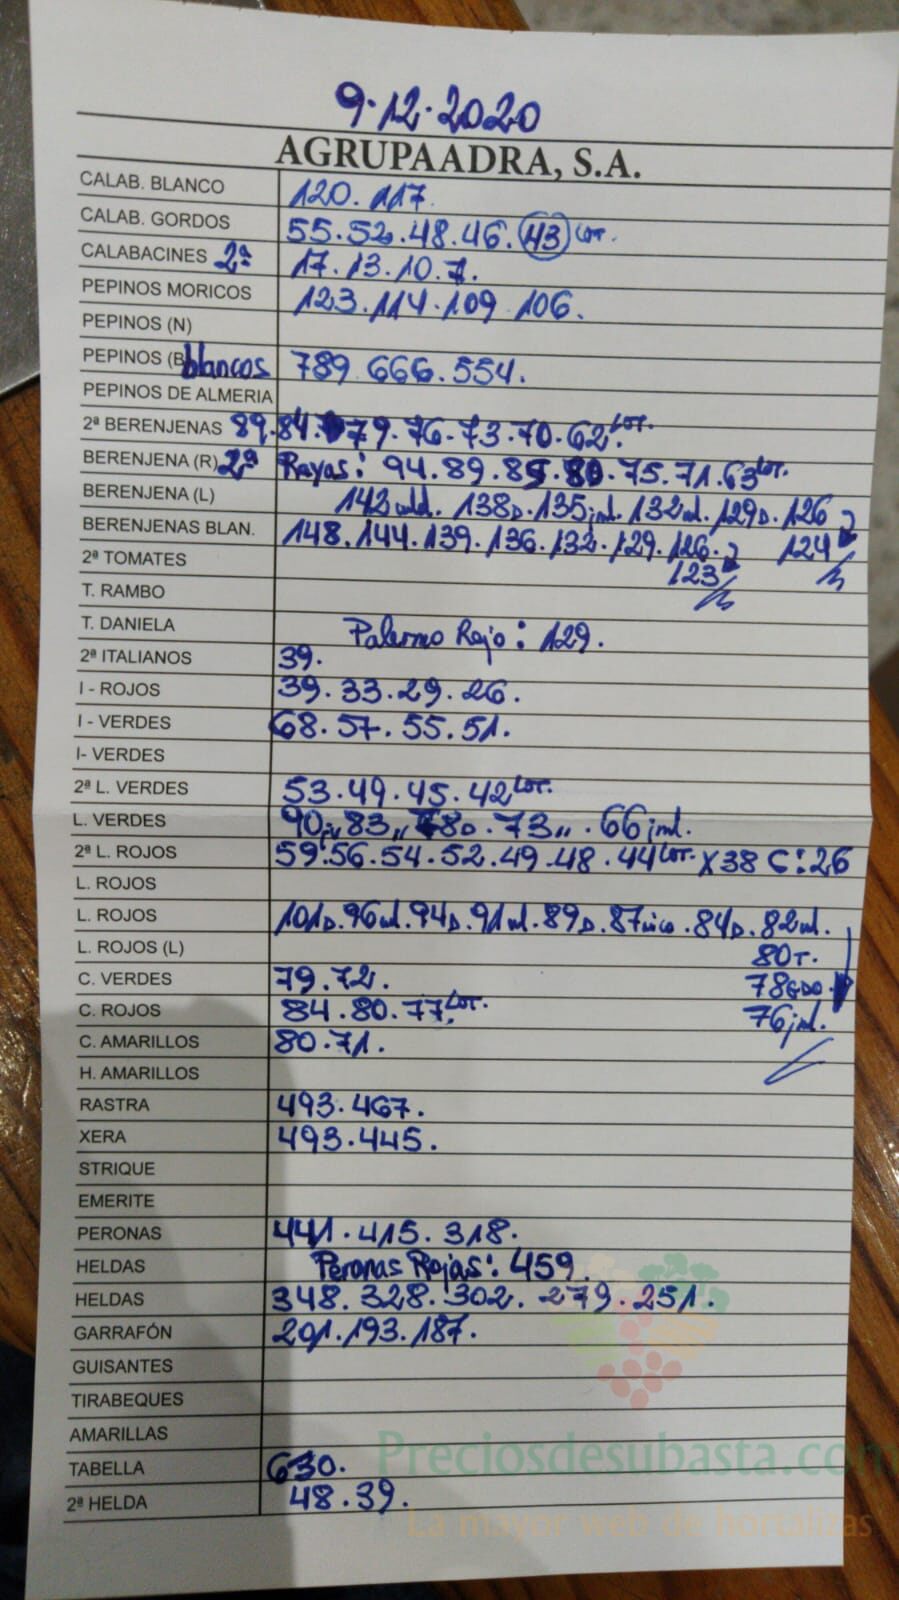 9.12.2020
AGRUPAADRA, S.A.
CALAB. BLANCO 120. 117.
CALAB. GORDOS 55.52.48.46.43 LOT.
CALABACINES 2ª 17.13.10.7.
PEPINOS MORICOS 123.114.109.106.
PEPINOS (N)
PEPINOS (B blancos 789.666.554.
PEPINOS DE ALMERIA
2ª BERENJENAS 89.84.79.76.73.70.62 LOT.
BERENJENA (R) 2ª Rayas: 94.89.85.80.75.71.63 LOT.
BERENJENA (L) 142 . 138D. 135 jml. 132 ml. 129D. 126
BERENJENAS BLAN. 148.144.139.136.132.129.126. 124
2ª TOMATES 123
T. RAMBO
T. DANIELA Palermo Rojo: 129.
2ª ITALIANOS 39.
I - ROJOS 39.33.29.26.
I - VERDES 68.57.55.51.
I- VERDES
2ª L. VERDES 53.49.45.42 LOT.
L. VERDES 90 83 „ 78D. 73 „ . 66 jml.
2ª L. ROJOS 59.56.54.52.49.48.44 LOT. X38 C:26
L. ROJOS
L. ROJOS 101D. 96ml. 94D. 91ml. 89D. 87 . 84D. 82ml.
L. ROJOS (L) 80T.
C. VERDES 79.72. 78GDO.
C. ROJOS 84.80.77 LOT. 76 jml.
C. AMARILLOS 80.71.
H. AMARILLOS
RASTRA 493.467.
XERA 493.445.
STRIQUE
EMERITE
PERONAS 441.415.318.
HELDAS Peronas Rojas: 459.
HELDAS 348.328.302.279.251.
GARRAFÓN 201.193.187.
GUISANTES
TIRABEQUES
AMARILLAS
Preciosdesubasta.com
TABELLA 630.
2ª HELDA 48.39.
La mayor web de hortalizas